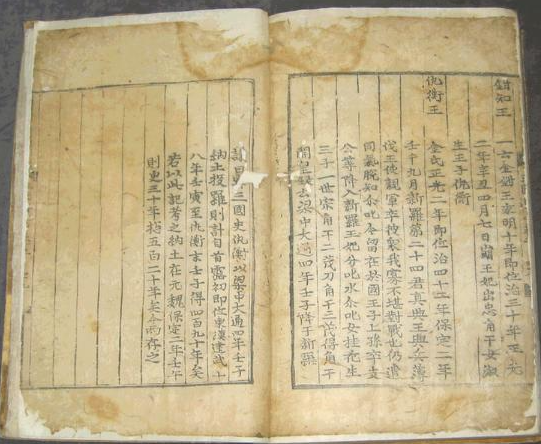 鉗知王
一云金鉗王永明十年即位治三十年正光
二年辛丑四月七日崩王妃出忠角干女淑
生王子仇衡
仇衡王
金氏正光二年即位治四十二年保定二年
壬午九月新羅第二十四君真興王興兵薄
伐王使親軍卒彼衆我寡不堪對戰也仍遣
同氣脫知尒叱今留在於國王子上孫卒支
公等降入新羅王妃分叱水尒叱女桂花生
三子一世宗角干二茂刀角干三茂得角干
開皇錄云梁中大通四年壬子降于新羅
議曰三國史仇衡以梁中大通四年壬子
納土投羅則計自首露初即位東漢建武十
八年壬寅至仇衡末壬子得四百九十年矣
若以此記考之納土在元魏保定二年壬午
則更三十年摠五百二十年矣今兩存之